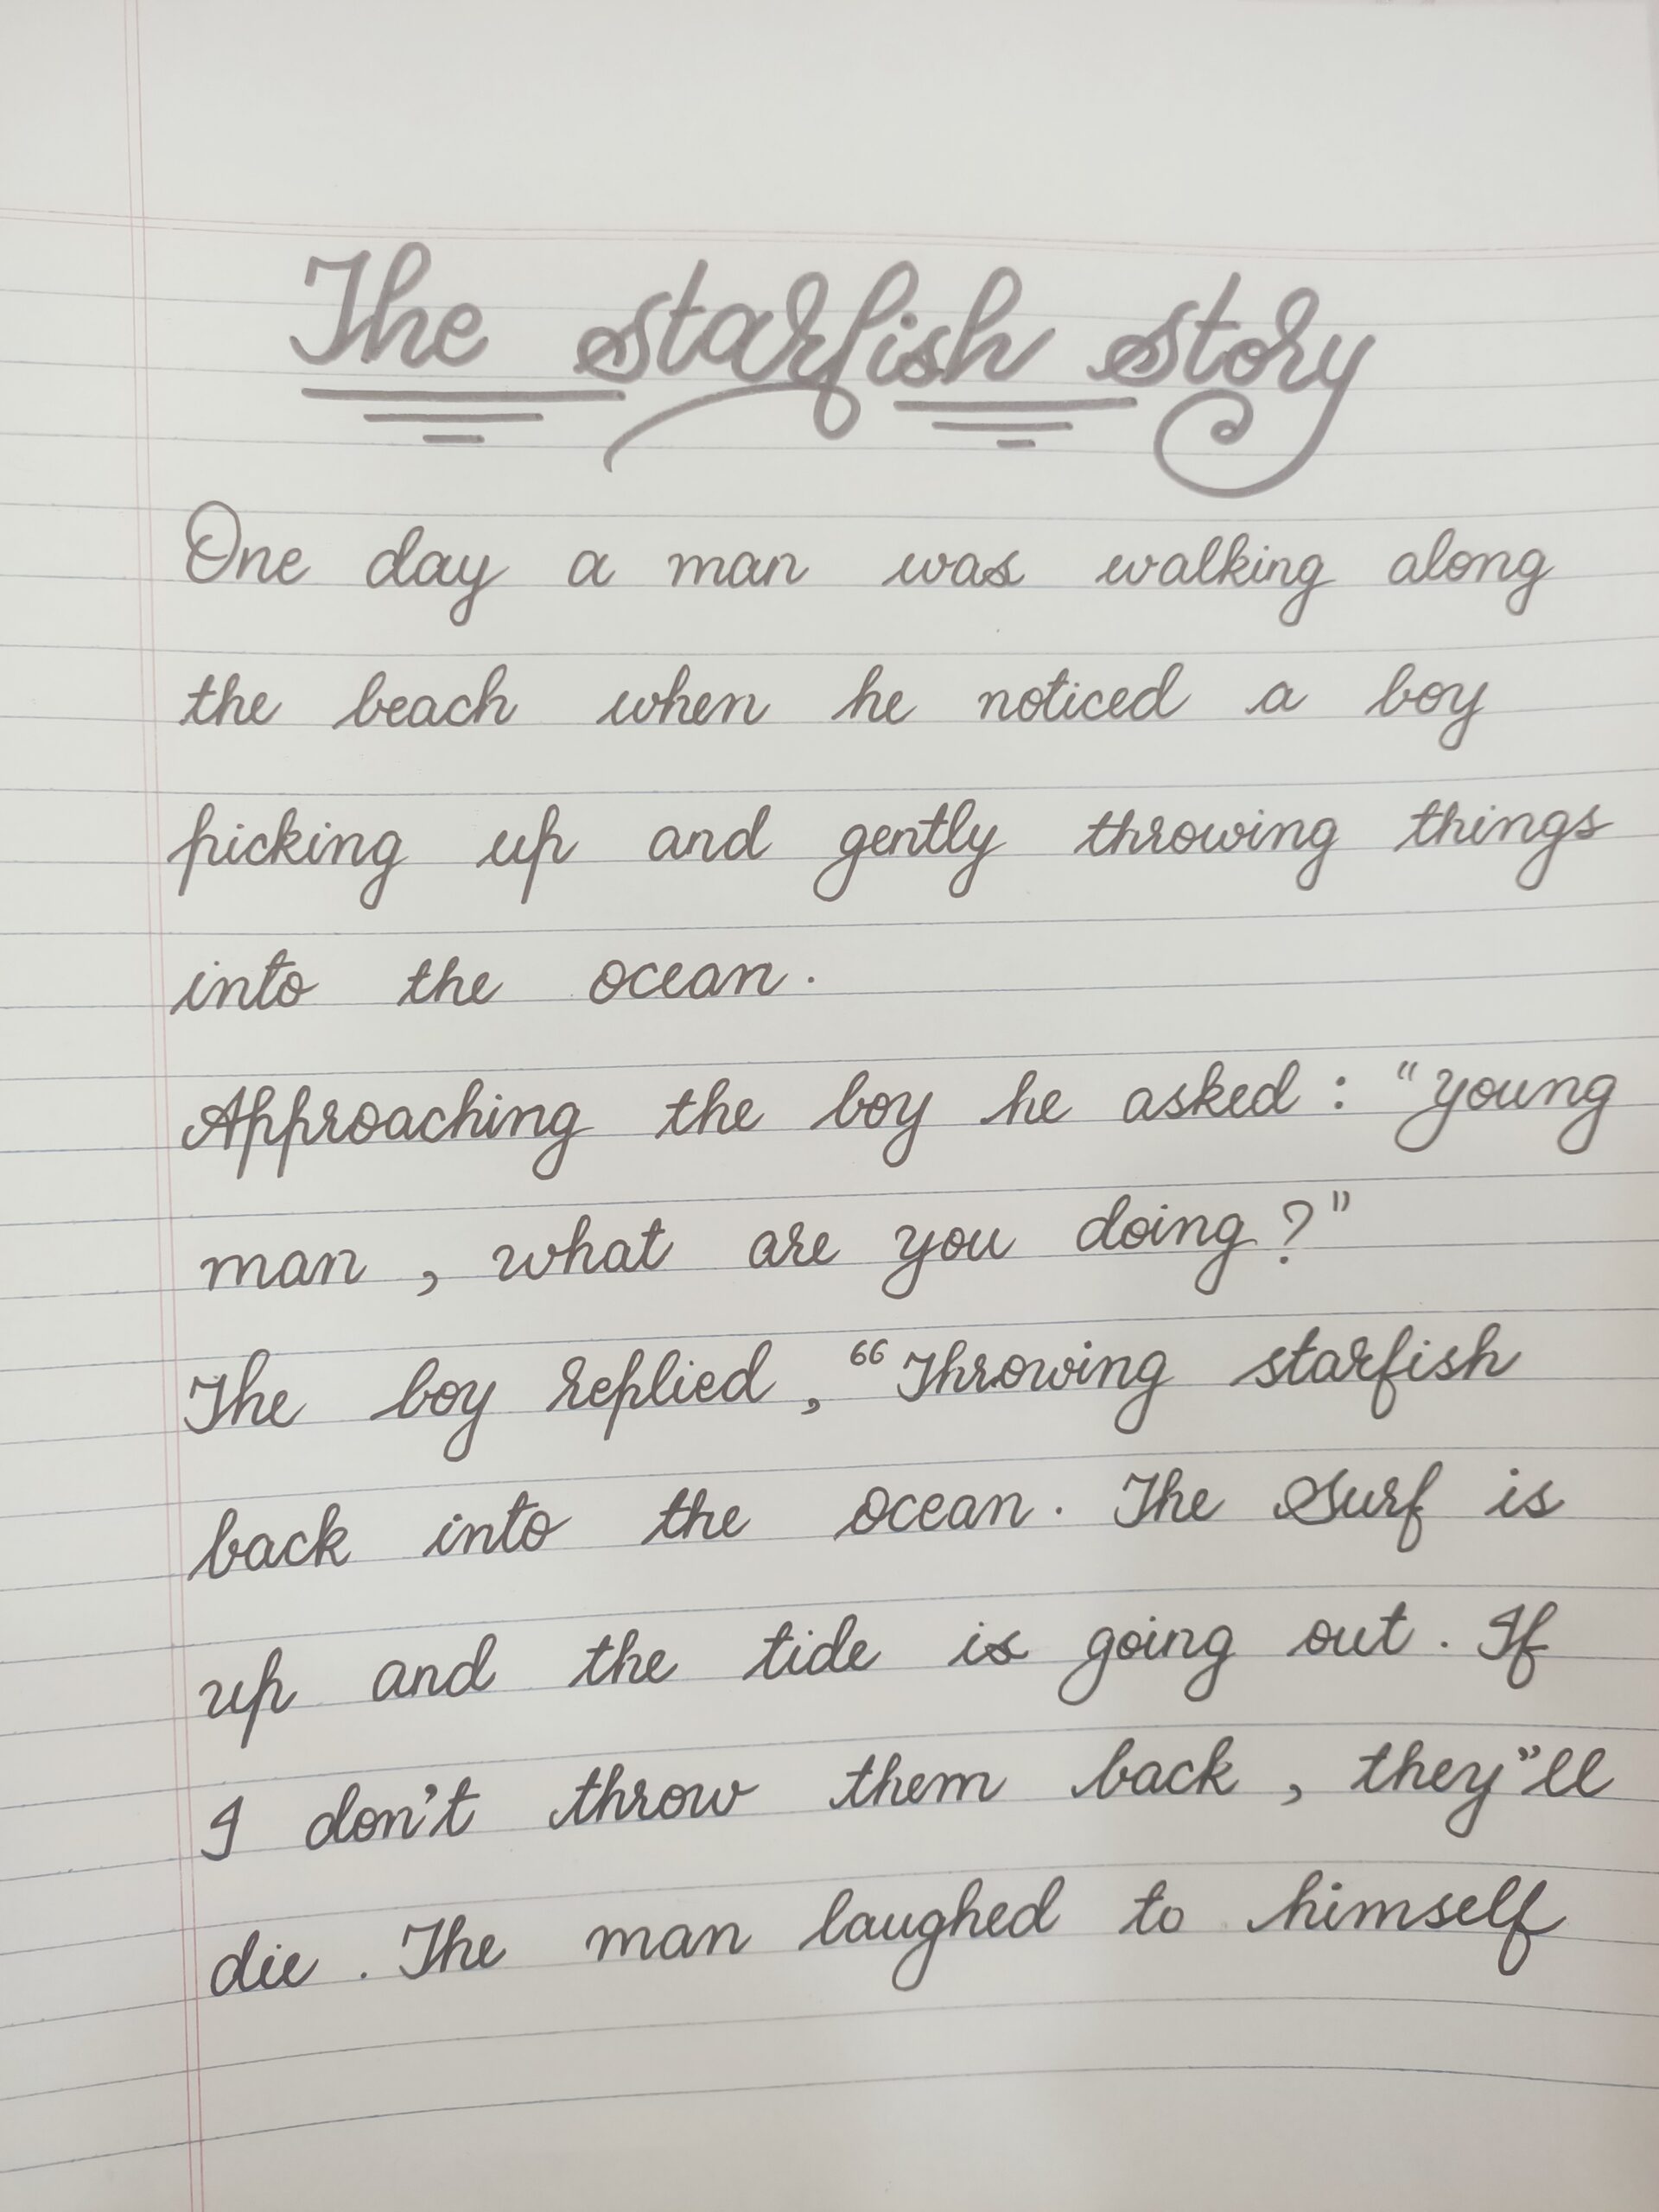 The starfish story
One day a man was walking along
the beach when he noticed a boy
picking up and gently throwing things
into the ocean.
Approaching the boy he asked : "young
man , what are you doing ?"
The boy replied , “Throwing starfish
back into the ocean. The Surf is
up and the tide is going out. If
I don't throw them back , they”ll
die . The man laughed to himself